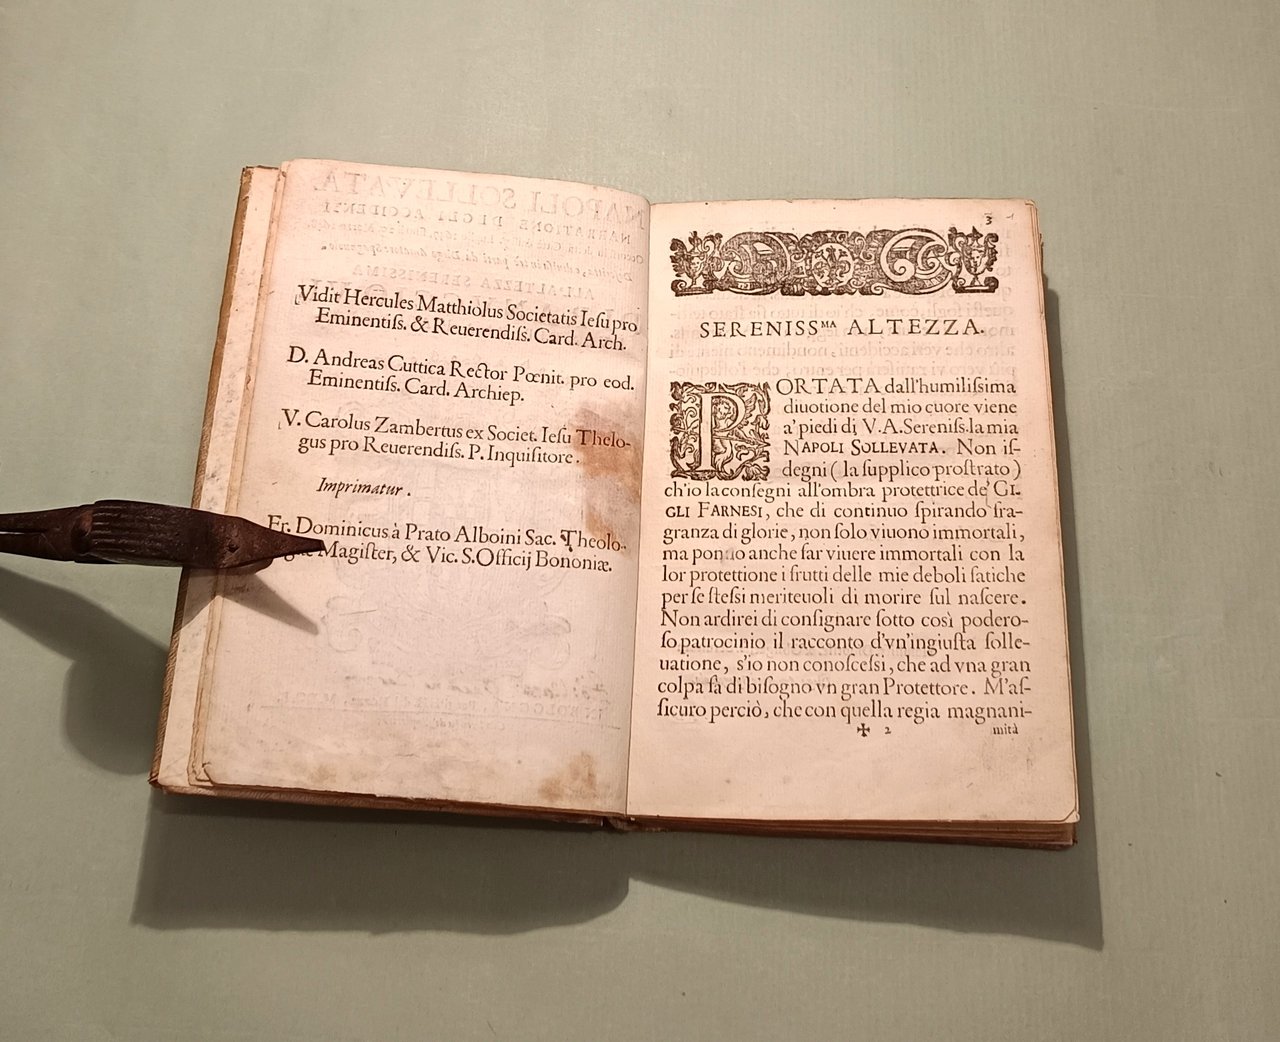 Vidit Hercules Matthiolus Societatis Ieſu pro
Eminentiſs. & Reuerendiſs. Card. Arch.
D. Andreas Cuttica Rector Pœnit. pro eod.
Eminentiſs. Card. Archiep.
V. Carolus Zambertus ex Societ. Ieſu Thelo-
gus pro Reuerendiſs. P. Inquiſitore.
Imprimatur.
Fr. Dominicus à Prato Alboini Sac. Theolo-
giæ Magiſter, & Vic. S. Officij Bononiæ.
3
SERENISSMA ALTEZZA.
PORTATA dall'humiliſsima
diuotione del mio cuore viene
a' piedi di V.A.Sereniſs.la mia
NAPOLI SOLLEVATA. Non iſ-
degni ( la ſupplico proſtrato )
ch'io la conſegni all'ombra protettrice de' GI-
GLI FARNESI, che di continuo ſpirando fra-
granza di glorie, non ſolo viuono immortali,
ma ponno anche far viuere immortali con la
lor protettione i frutti delle mie deboli fatiche
per ſe ſteſsi meriteuoli di morire ſul naſcere.
Non ardirei di conſignare ſotto così podero-
ſo patrocinio il racconto d'vn'ingiuſta ſolle-
uatione, s'io non conoſceſsi, che ad vna gran
colpa fa di biſogno vn gran Protettore. M'aſ-
ſicuro perciò, che con quella regia magnani-
✠ 2 mità